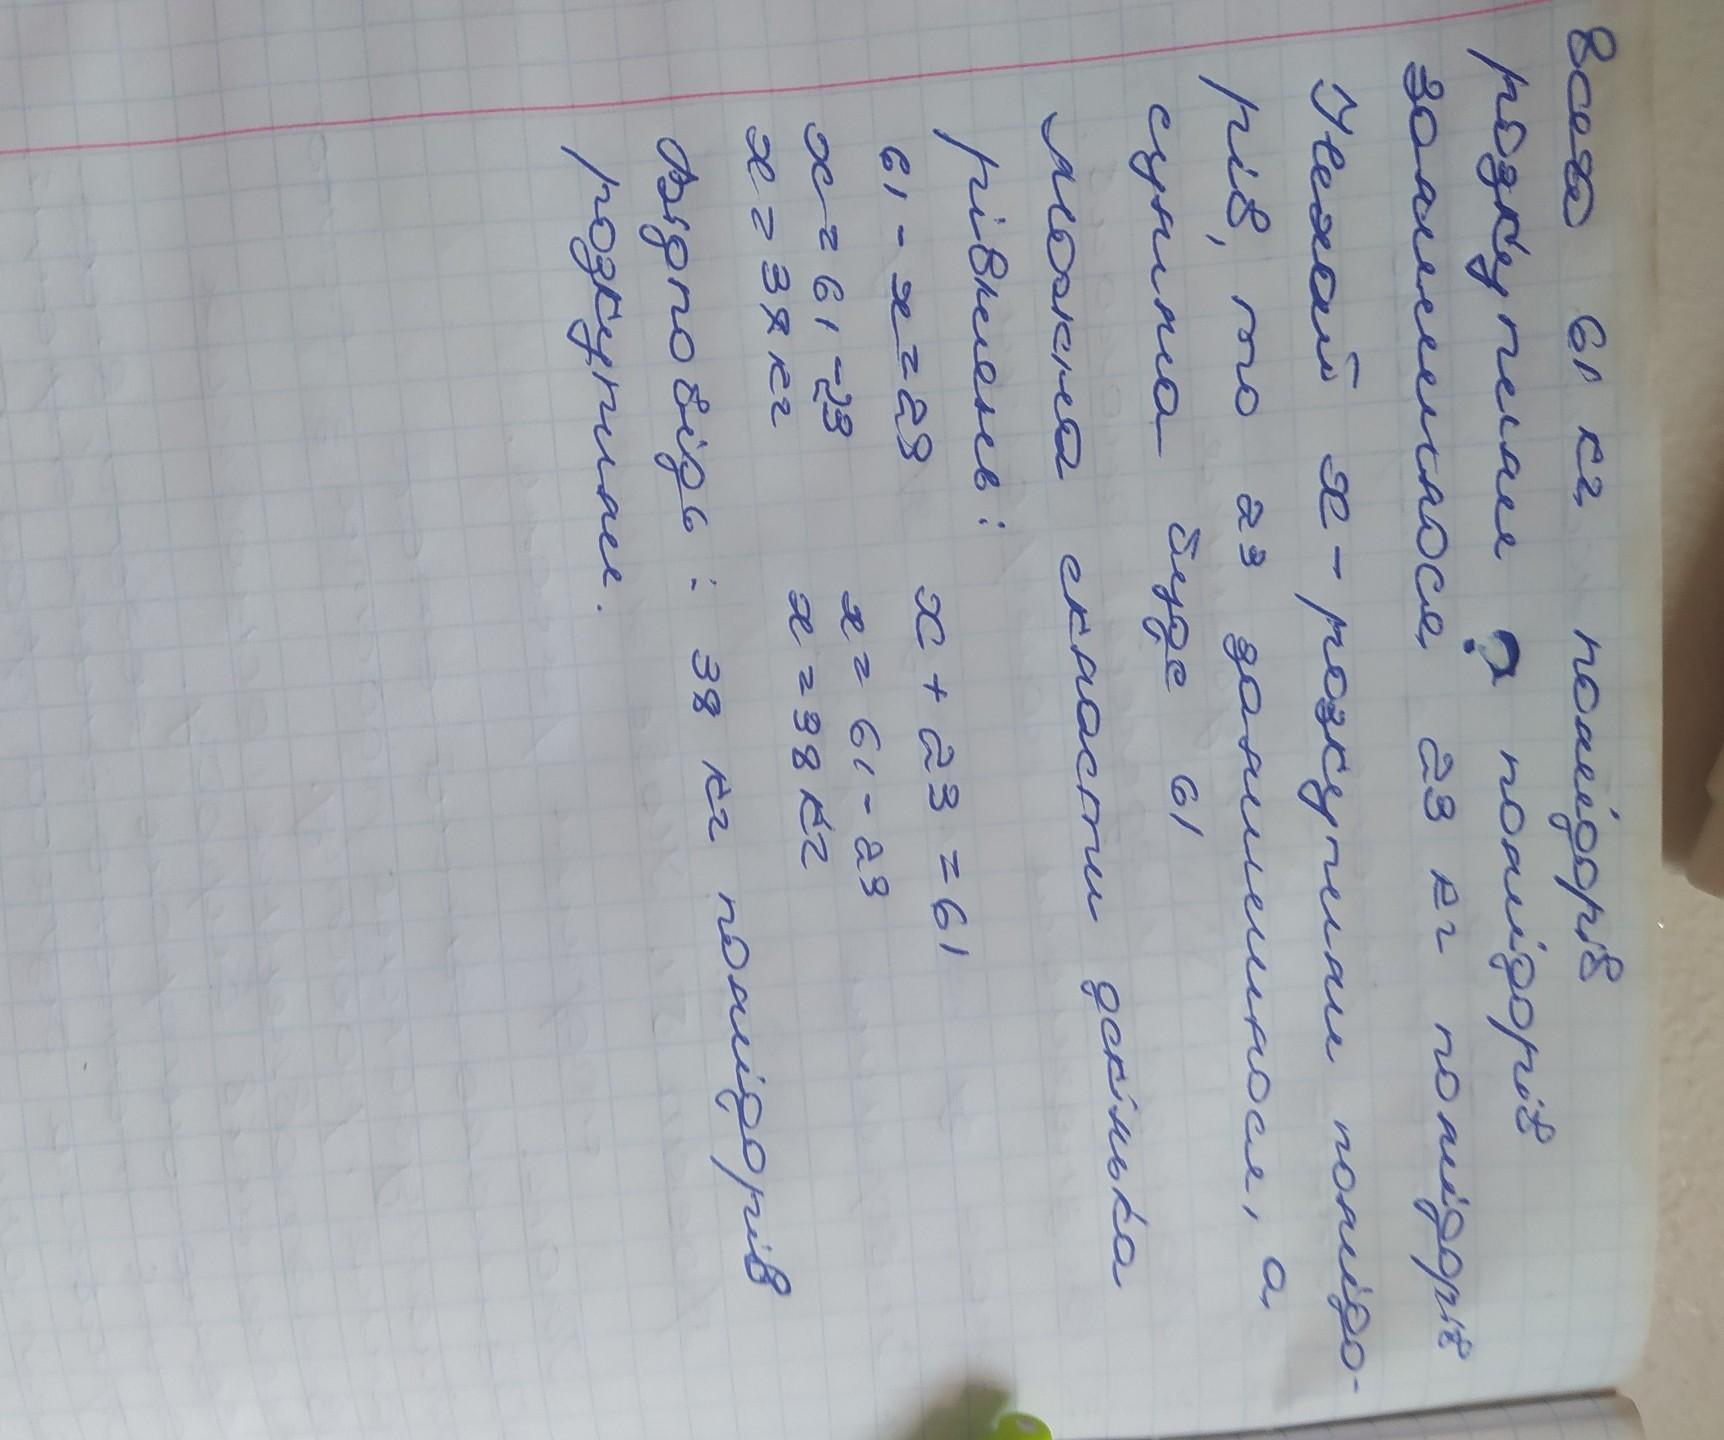 всего 61 кг помідорів
розкупили ? помідорів
залишилося 23 кг помідорів
Нехай х - розкупили помідо-
рів, то 23 залишилося, а
сумма буде 61
Можна скласти декілька
рівнень:
61 - х = 23    х + 23 = 61
х = 61 - 23    х = 61 - 23
х = 38 кг    х = 38 кг
Відповідь: 38 кг помідорів
розкупили.